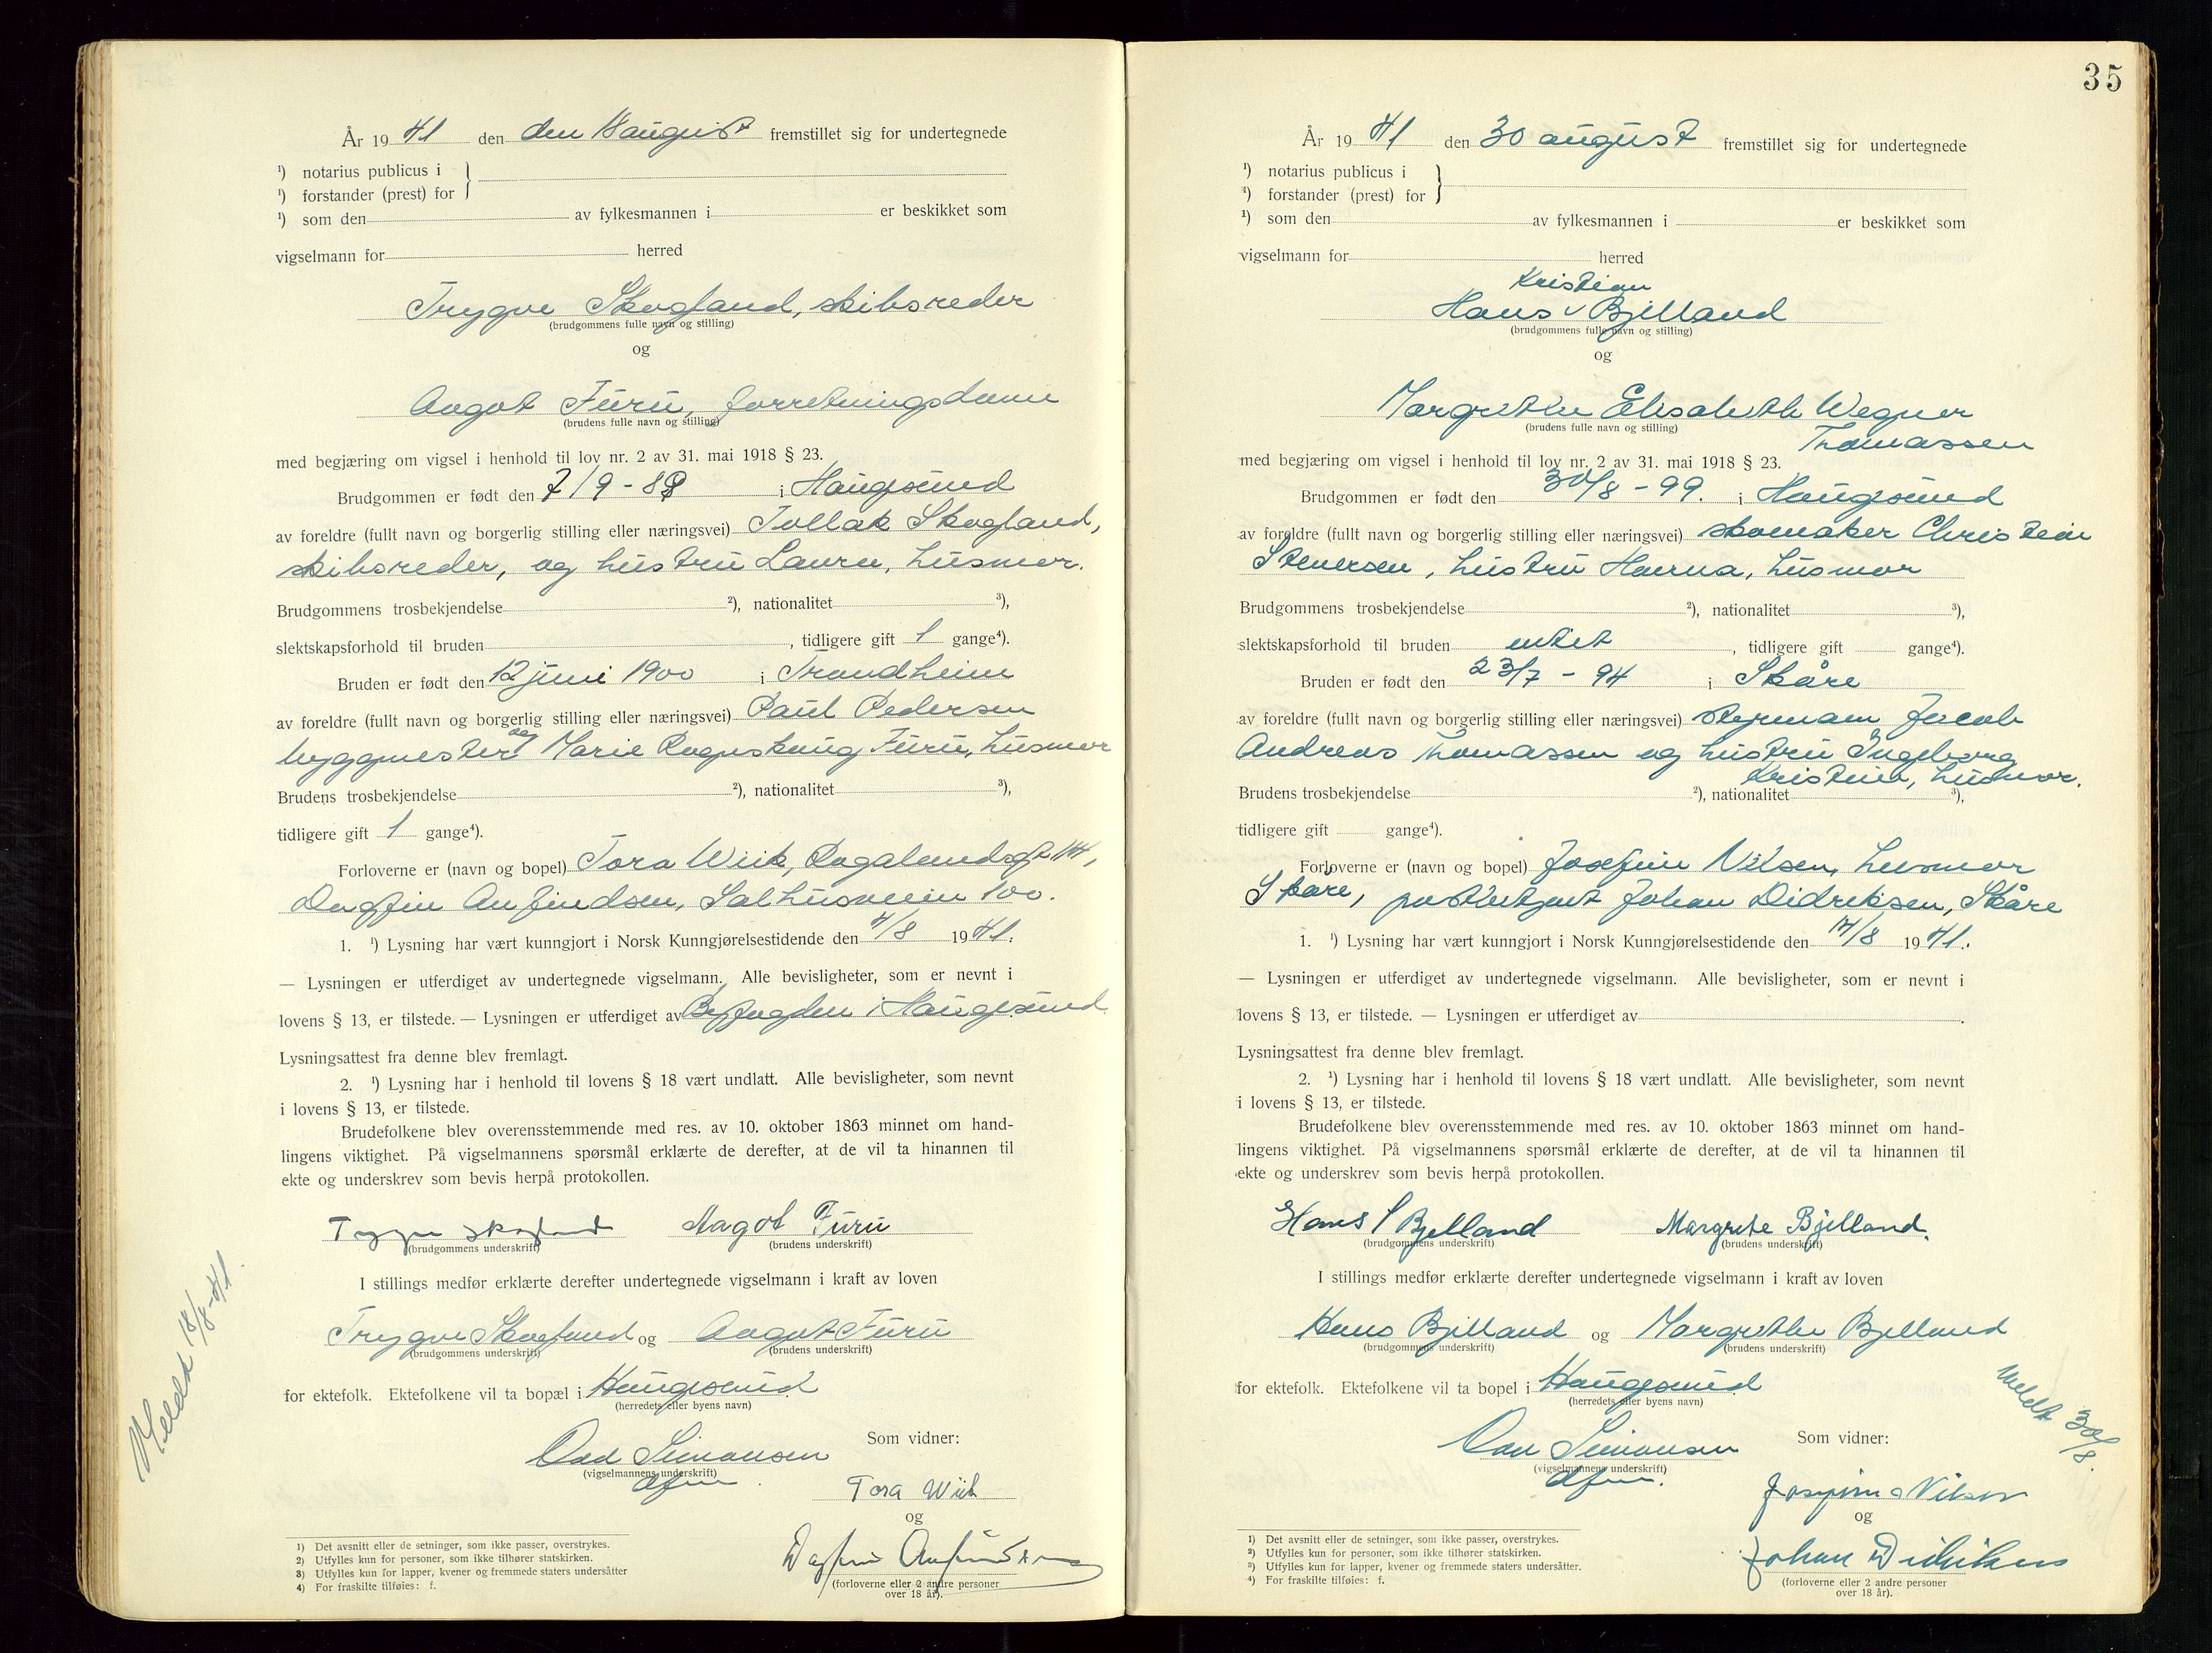 År 19 41 den den 18 august fremstillet sig for undertegnede
¹) notarius publicus i
¹) forstander (prest) for
¹) som den av fylkesmannen i er beskikket som
vigselmann for herred
Trygve Skogland, skibsreder
(brudgommens fulle navn og stilling)
og
Aagot Furu, forretningsdame
(brudens fulle navn og stilling)
med begjæring om vigsel i henhold til lov nr. 2 av 31. mai 1918 § 23.
Brudgommen er født den 7/9 - 88 i Haugesund
av foreldre (fullt navn og borgerlig stilling eller næringsvei) Tollak Skogland,
skibsreder, og hustru Laura, husmor.
Brudgommens trosbekjendelse ²), nationalitet ³),
slektskapsforhold til bruden , tidligere gift 1 gange⁴).
Bruden er født den 12 juni 1900 i Trondheim
av foreldre (fullt navn og borgerlig stilling eller næringsvei) Paul Pedersen
byggmester og Marie Rognskaug Furu, husmor
Brudens trosbekjendelse ²), nationalitet ³),
tidligere gift 1 gange⁴).
Forloverne er (navn og bopel) Tora Wiik, Rogalandsgt 114,
Dagfin Anfindsen, Salhusveien 100.
1. ¹) Lysning har vært kunngjort i Norsk Kunngjørelsestidende den 4/8 1941.
— Lysningen er utferdiget av undertegnede vigselmann. Alle bevisligheter, som er nevnt i
lovens § 13, er tilstede. — Lysningen er utferdiget av Byfogden i Haugesund
Lysningsattest fra denne blev fremlagt.
2. ¹) Lysning har i henhold til lovens § 18 vært undlatt. Alle bevisligheter, som nevnt
i lovens § 13, er tilstede.
Brudefolkene blev overensstemmende med res. av 10. oktober 1863 minnet om hand-
lingens viktighet. På vigselmannens spørsmål erklærte de derefter, at de vil ta hinannen til
ekte og underskrev som bevis herpå protokollen.
Trygve Skogland Aagot Furu
(brudgommens underskrift) (brudens underskrift)
I stillings medfør erklærte derefter undertegnede vigselmann i kraft av loven
Trygve Skogland og Aagot Furu
(brudgommens underskrift) (brudens underskrift)
for ektefolk. Ektefolkene vil ta bopæl i Haugesund
(herredets eller byens navn)
Odd Simonsen
(vigselmannens underskrift)
dfm.
Som vidner:
Tora Wiik
og
Dagfin Anfindsen
(forloverne eller 2 andre personer
over 18 år).
Meldt 18/8-41.
1) Det avsnitt eller de setninger, som ikke passer, overstrykes.
2) Utfylles kun for personer, som ikke tilhører statskirken.
3) Utfylles kun for lapper, kvener og fremmede staters undersåtter
4) For fraskilte tilføies: f.
35
År 19 41 den 30 august fremstillet sig for undertegnede
¹) notarius publicus i
¹) forstander (prest) for
¹) som den av fylkesmannen i er beskikket som
vigselmann for herred
Kristian
Hans v Bjelland
(brudgommens fulle navn og stilling)
og
Margrethe Elisabeth Wegner
(brudens fulle navn og stilling) Thomassen
med begjæring om vigsel i henhold til lov nr. 2 av 31. mai 1918 § 23.
Brudgommen er født den 30/8 - 99. i Haugesund
av foreldre (fullt navn og borgerlig stilling eller næringsvei) skomaker Christian
Stenersen, hustru Hanna, husmor
Brudgommens trosbekjendelse ²), nationalitet ³),
slektskapsforhold til bruden intet , tidligere gift gange⁴).
Bruden er født den 23/7 - 94 i Skåre
av foreldre (fullt navn og borgerlig stilling eller næringsvei) styrmann Jacob
Andreas Thomassen og hustru Ingeborg
Kristine, husmor.
Brudens trosbekjendelse ²), nationalitet ³),
tidligere gift gange⁴).
Forloverne er (navn og bopel) Josefine Nilsen, husmor
Skåre, postbetjent Johan Didriksen, Skåre
1. ¹) Lysning har vært kunngjort i Norsk Kunngjørelsestidende den 14/8 1941.
— Lysningen er utferdiget av undertegnede vigselmann. Alle bevisligheter, som er nevnt i
lovens § 13, er tilstede. — Lysningen er utferdiget av
Lysningsattest fra denne blev fremlagt.
2. ¹) Lysning har i henhold til lovens § 18 vært undlatt. Alle bevisligheter, som nevnt
i lovens § 13, er tilstede.
Brudefolkene blev overensstemmende med res. av 10. oktober 1863 minnet om hand-
lingens viktighet. På vigselmannens spørsmål erklærte de derefter, at de vil ta hinannen til
ekte og underskrev som bevis herpå protokollen.
Hans Bjelland Margrete Bjelland.
(brudgommens underskrift) (brudens underskrift)
I stillings medfør erklærte derefter undertegnede vigselmann i kraft av loven
Hans Bjelland og Margrethe Bjelland
(brudgommens underskrift) (brudens underskrift)
for ektefolk. Ektefolkene vil ta bopel i Haugesund
(herredets eller byens navn)
Meldt 30/8.
Odd Simonsen
(vigselmannens underskrift)
dfm.
Som vidner:
Josefine Nilsen
og
Johan Didriksen
(forloverne eller 2 andre personer
over 18 år).
¹) Det avsnitt eller de setninger, som ikke passer, overstrykes.
²) Utfylles kun for personer, som ikke tilhører statskirken.
³) Utfylles kun for lapper, kvener og fremmede staters undersåtter.
⁴) For fraskilte tilføies: f.